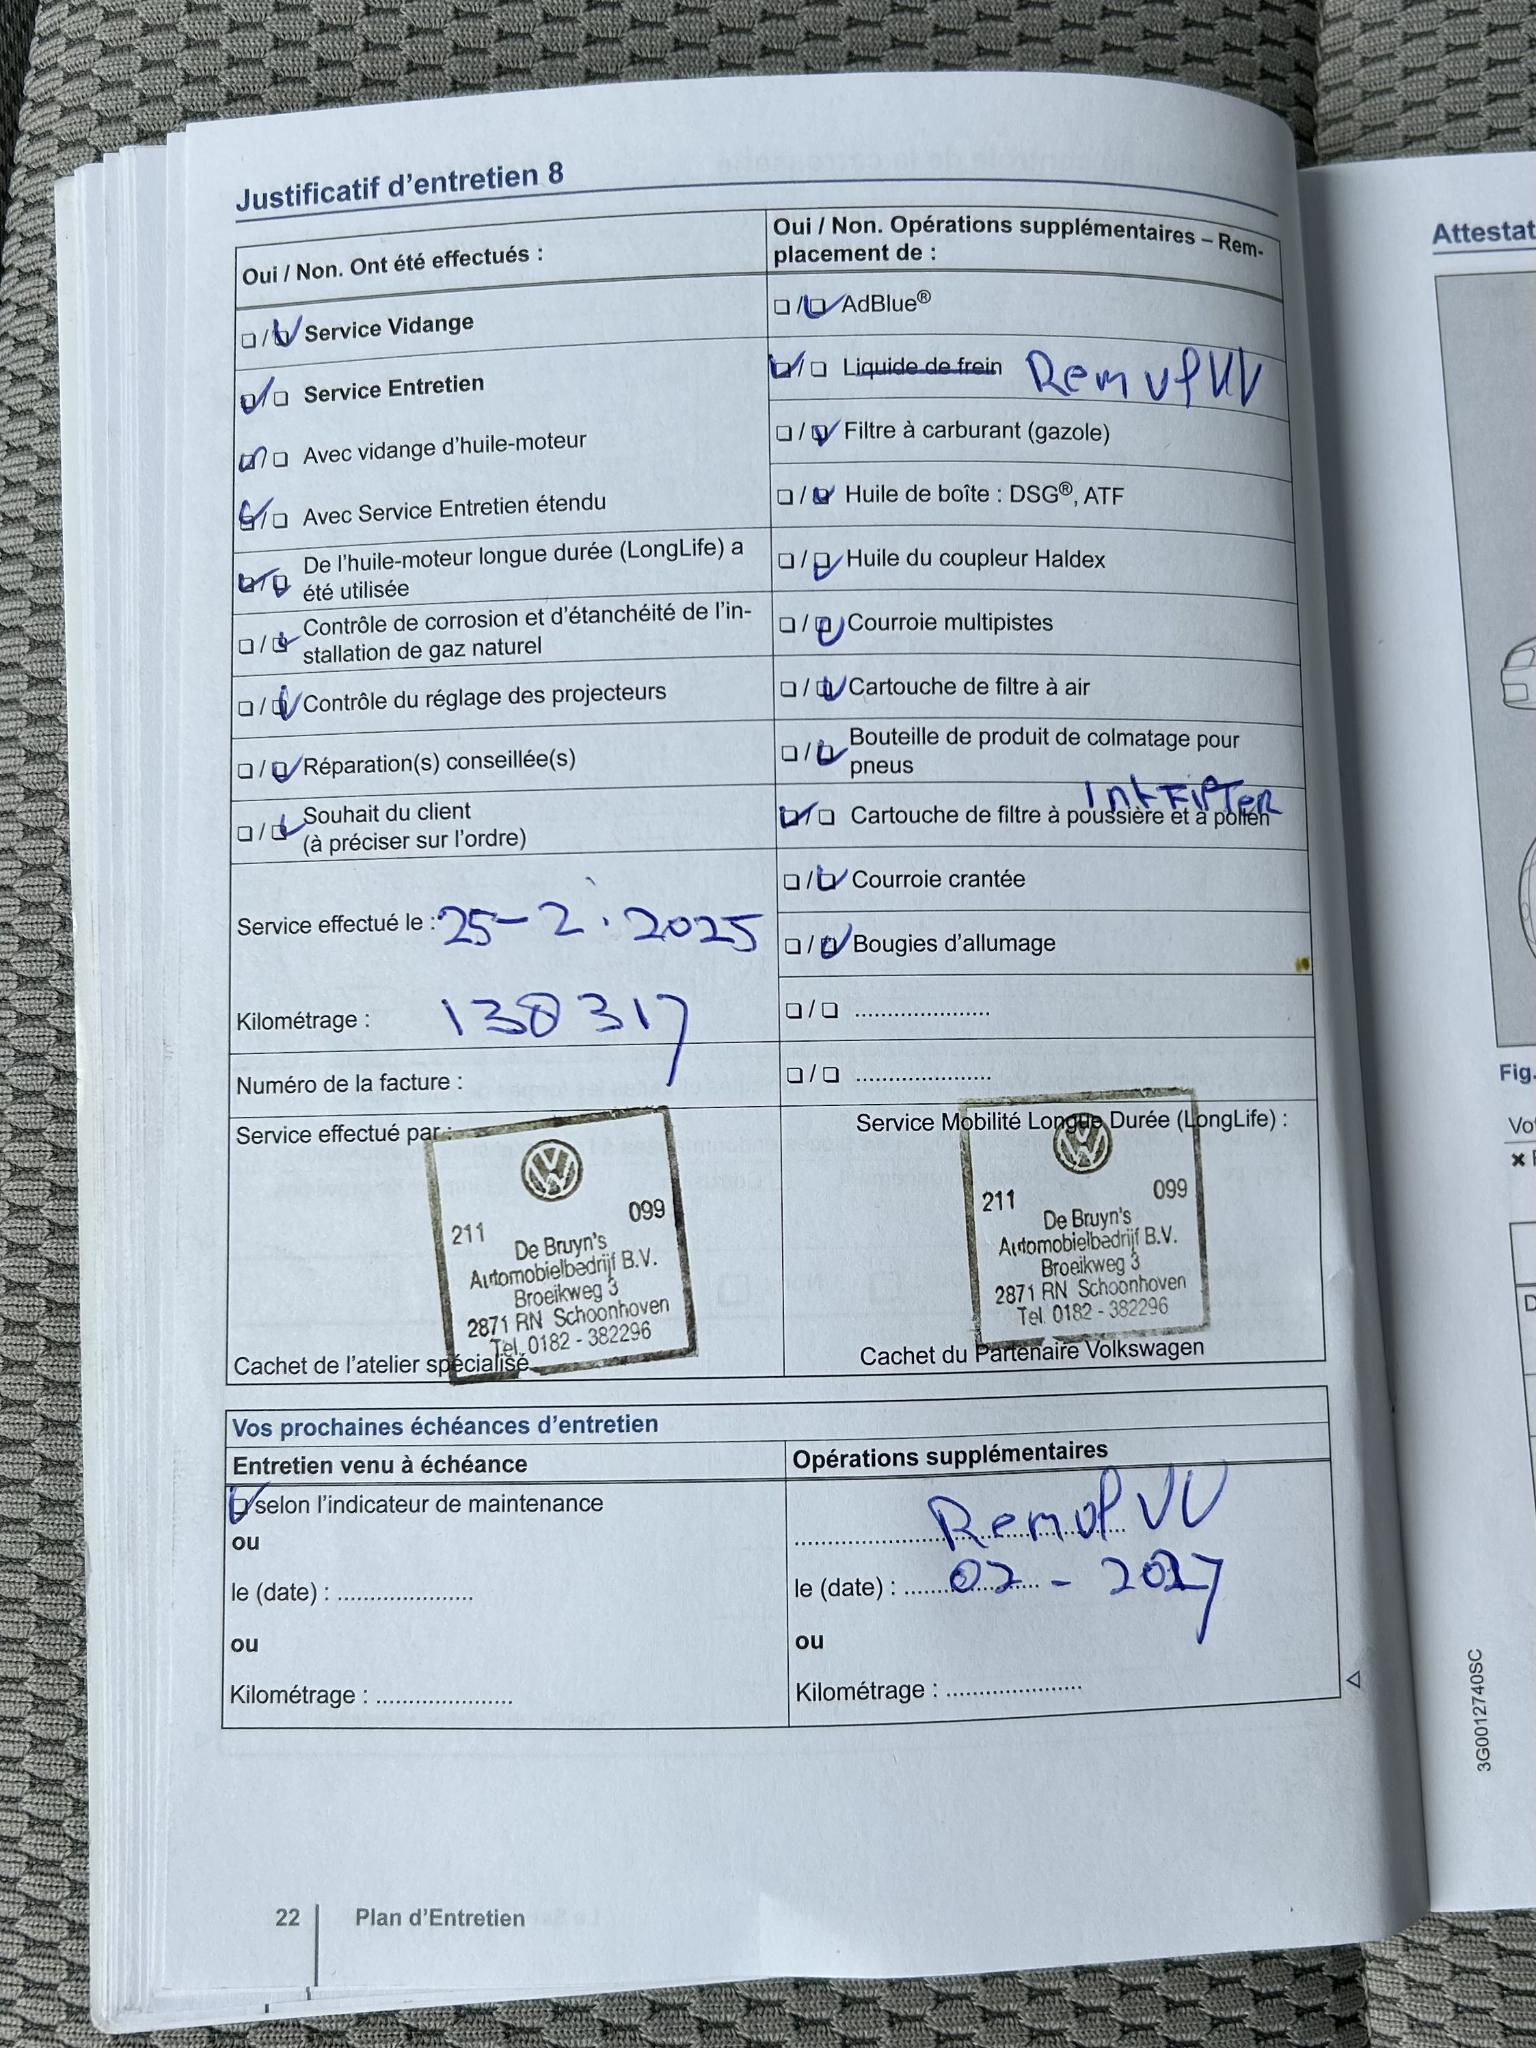 Justificatif d'entretien 8
Oui / Non. Ont été effectués :
❏ / ❏ Service Vidange
❏ / ❏ Service Entretien
❏ / ❏ Avec vidange d'huile-moteur
❏ / ❏ Avec Service Entretien étendu
❏ / ❏ De l'huile-moteur longue durée (LongLife) a
été utilisée
❏ / ❏ Contrôle de corrosion et d'étanchéité de l'in-
stallation de gaz naturel
❏ / ❏ Contrôle du réglage des projecteurs
❏ / ❏ Réparation(s) conseillée(s)
❏ / ❏ Souhait du client
(à préciser sur l'ordre)
Service effectué le : 25-2.2025
Kilométrage : 138317
Numéro de la facture :
Oui / Non. Opérations supplémentaires – Rem-
placement de :
❏ / ❏ AdBlue®
❏ / ❏ Liquide de frein Remvl VV
❏ / ❏ Filtre à carburant (gazole)
❏ / ❏ Huile de boîte : DSG®, ATF
❏ / ❏ Huile du coupleur Haldex
❏ / ❏ Courroie multipistes
❏ / ❏ Cartouche de filtre à air
❏ / ❏ Bouteille de produit de colmatage pour
pneus
IntFilTer
❏ / ❏ Cartouche de filtre à poussière et à pollen
❏ / ❏ Courroie crantée
❏ / ❏ Bougies d'allumage
❏ / ❏ .....................
❏ / ❏ .....................
Service effectué par :
211 099
De Bruyn's
Automobielbedrijf B.V.
Broeikweg 3
2871 RN Schoonhoven
Tel. 0182 - 382296
Cachet de l'atelier spécialisé
Service Mobilité Longue Durée (LongLife) :
211 099
De Bruyn's
Automobielbedrijf B.V.
Broeikweg 3
2871 RN Schoonhoven
Tel. 0182 - 382296
Cachet du Partenaire Volkswagen
Vos prochaines échéances d'entretien
Entretien venu à échéance
❏ selon l'indicateur de maintenance
ou
le (date) : .....................
ou
Kilométrage : .....................
Opérations supplémentaires
Remvl VV
le (date) : 02 - 2027
ou
Kilométrage : .....................
22 Plan d'Entretien
Attestat
Fig.
Vot
3G0012740SC